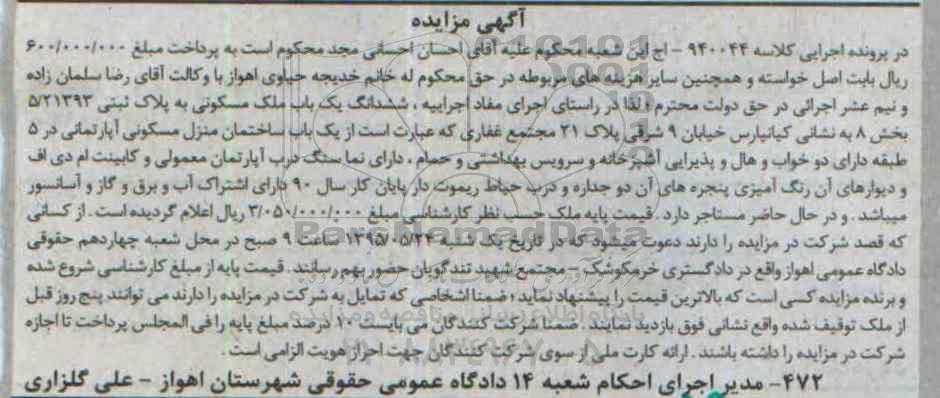 آگهی مزایده
در پرونده اجرایی کلاسه ۹۴۰۰۴۴ - اج این شعبه محکوم علیه آقای احسان احسانی مجد محکوم است به پرداخت مبلغ ۶۰۰/۰۰۰/۰۰۰
ریال بابت اصل خواسته و همچنین سایر هزینه های مربوطه در حق محکوم له خانم خدیجه حیاوی اهواز با وکالت آقای رضا سلمان زاده
و نیم عشر اجرائی در حق دولت محترم ؛ لذا در راستای اجرای مفاد اجراییه ، ششدانگ یک باب ملک مسکونی به پلاک ثبتی ۵/۲۱۳۹۳
بخش ۸ به نشانی کیانپارس خیابان ۹ شرقی پلاک ۲۱ مجتمع غفاری که عبارت است از یک باب ساختمان منزل مسکونی آپارتمانی در ۵
طبقه دارای دو خواب و هال و پذیرایی آشپزخانه و سرویس بهداشتی و حمام ، دارای نما سنگ درب آپارتمان معمولی و کابینت ام دی اف
و دیوارهای آن رنگ آمیزی پنجره های آن دو جداره و درب حیاط ریموت دار پایان کار سال ۹۰ دارای اشتراک آب و برق و گاز و آسانسور
میباشد . و در حال حاضر مستاجر دارد . قیمت پایه ملک حسب نظر کارشناسی مبلغ ۳/۰۵۰/۰۰۰/۰۰۰ ریال اعلام گردیده است . از کسانی
که قصد شرکت در مزایده را دارند دعوت میشود که در تاریخ یک شنبه ۱۳۹۵/۰۵/۲۴ ساعت ۹ صبح در محل شعبه چهاردهم حقوقی
دادگاه عمومی اهواز واقع در دادگستری خرمکوشک - مجتمع شهید تندگویان حضور بهم رسانند . قیمت پایه از مبلغ کارشناسی شروع شده
و برنده مزایده کسی است که بالاترین قیمت را پیشنهاد نماید ؛ ضمنا اشخاصی که تمایل به شرکت در مزایده را دارند می توانند پنج روز قبل
از ملک توقیف شده واقع نشانی فوق بازدید نمایند . ضمنا شرکت کنندگان می بایست ۱۰ درصد مبلغ پایه را فی المجلس پرداخت تا اجازه
شرکت در مزایده را داشته باشند . ارائه کارت ملی از سوی شرکت کنندگان جهت احراز هویت الزامی است .
۴۷۲- مدیر اجرای احکام شعبه ۱۴ دادگاه عمومی حقوقی شهرستان اهواز - علی گلزاری
ParsNamadData